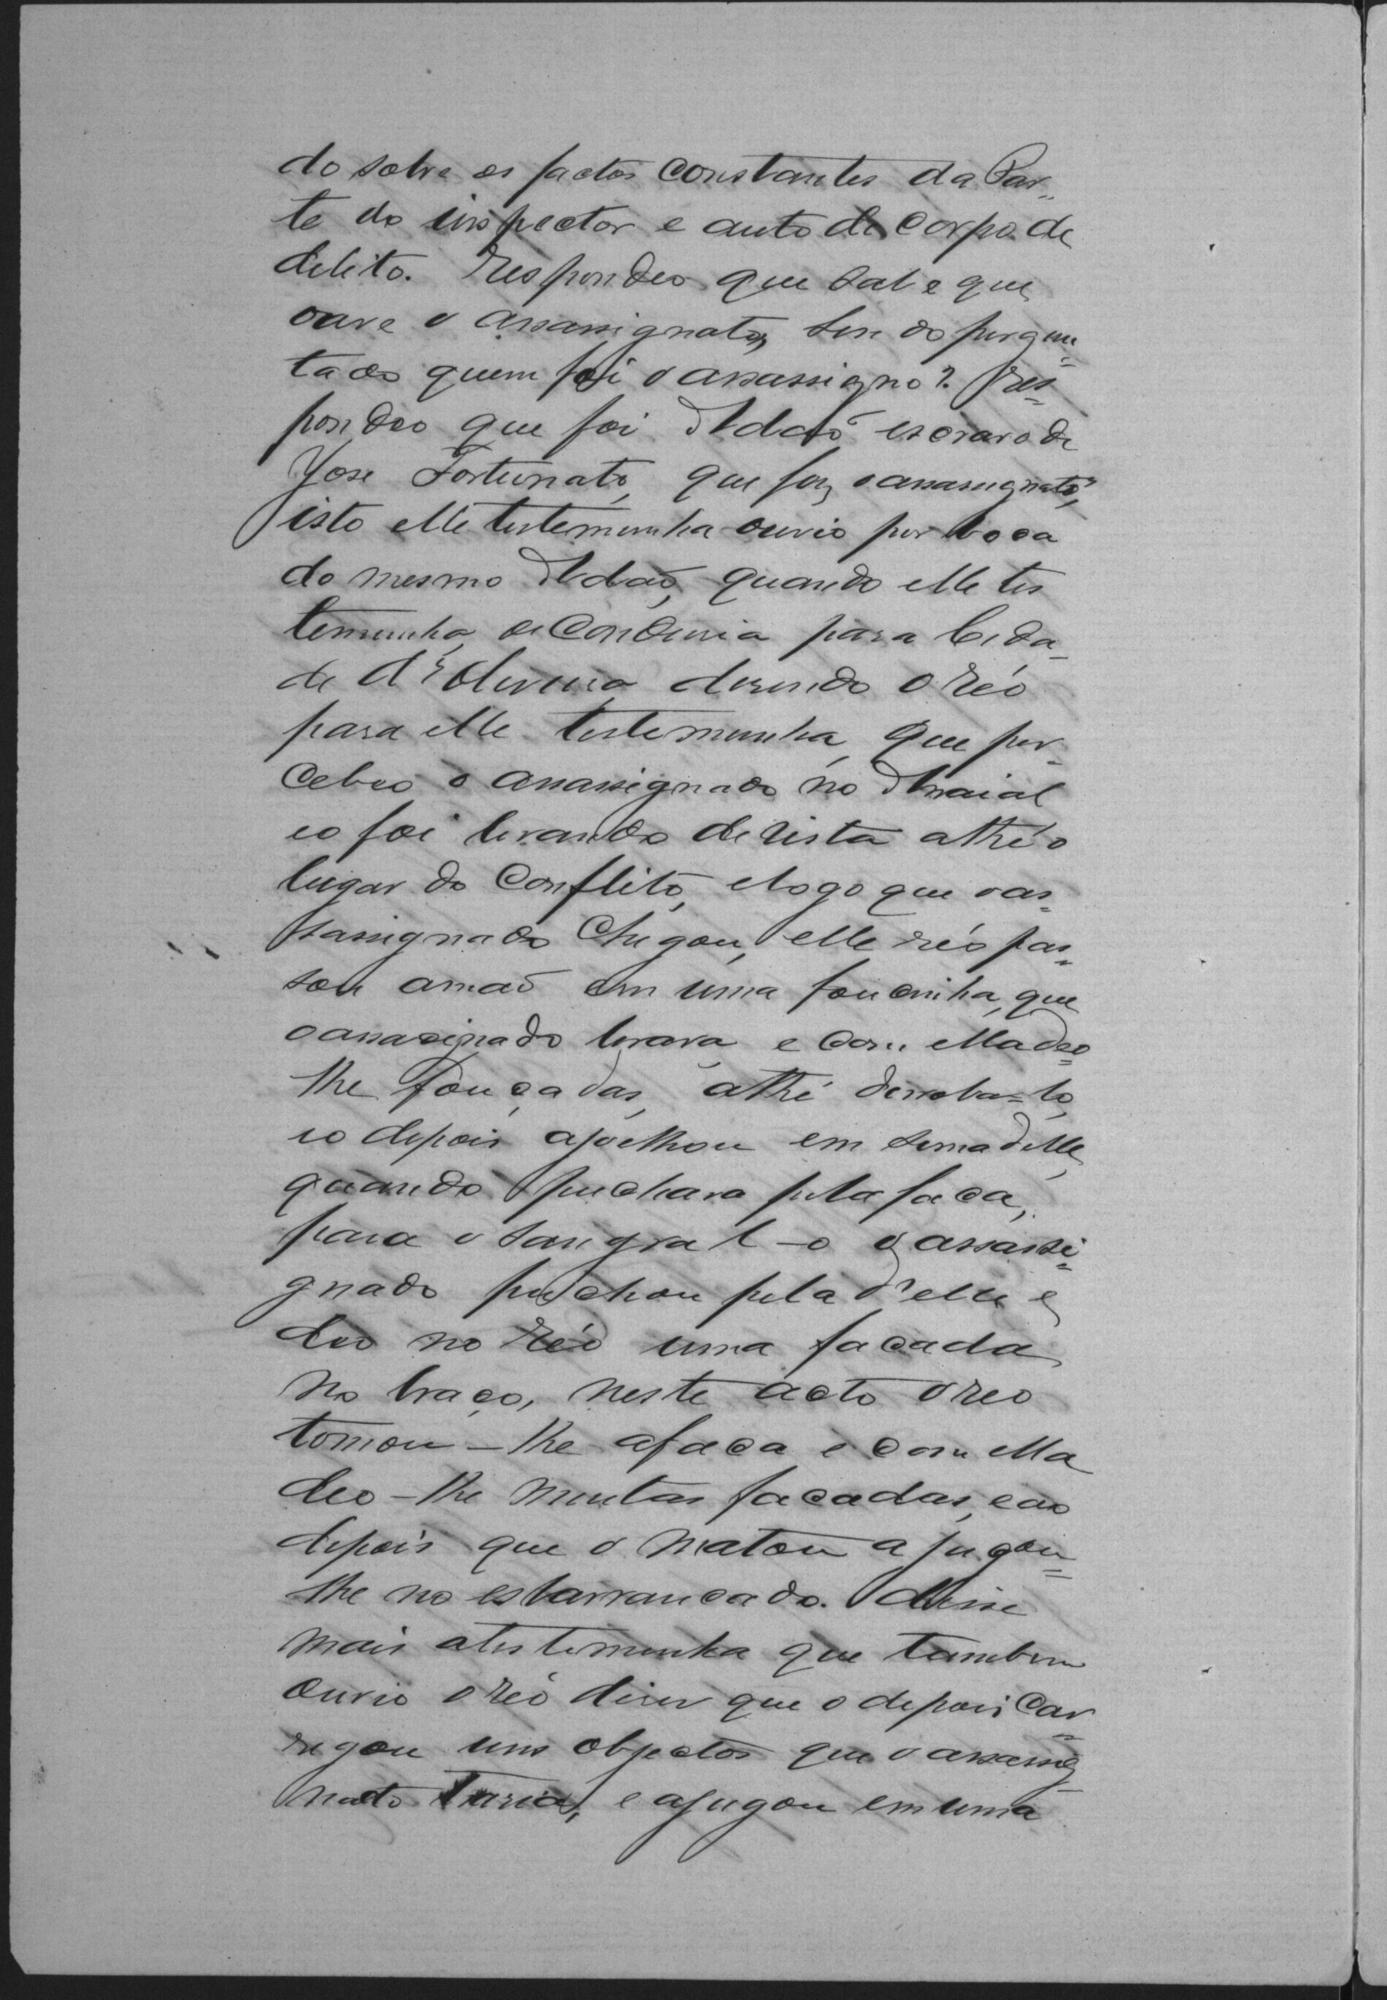 do sobre os factos constantes da Par-
te do inspector e auto de Corpo de
delito. Respondeo que sabe que
ouve o assassignato, sendo pergun-
tado quem foi o assassigno? Res-
pondeo que foi Adaõ escravo de
Jose Fortunato, que fez o assassignato,
isto elle testemunha ouvio por boca
do mesmo Adaõ, quando elle tes
temunha o conduzia para Cida-
de d'Oliveira, dizendo o réo
para elle testemunha, que per-
cebeo o assassignado no Arraial
eo foi levando de vista athé o
lugar do Conflito, e logo que o as-
sassignado Chegou, elle réo pas-
sou amaõ em uma foucinha, que
o assacignado levava, e com ella deo-
lhe fouçadas, athé derroba-lo,
eo depois ajoelhou em sima delle,
quando puchava pela faca,
para o sangral-o o assassi-
gnado puchou pela d'elle e
deo no réo uma facada
no braço, neste acto o reo
tomou-lhe afaca e com ella
deo-lhe muitas facadas, eao
depois que o matou a jugou-
lhe no esbarrancado. Disse
mais atestemunha que tambem
ouvio o réo dizer que o depois Car-
regou uns objectos que o assassig-
nato trazia, e ajugou em uma